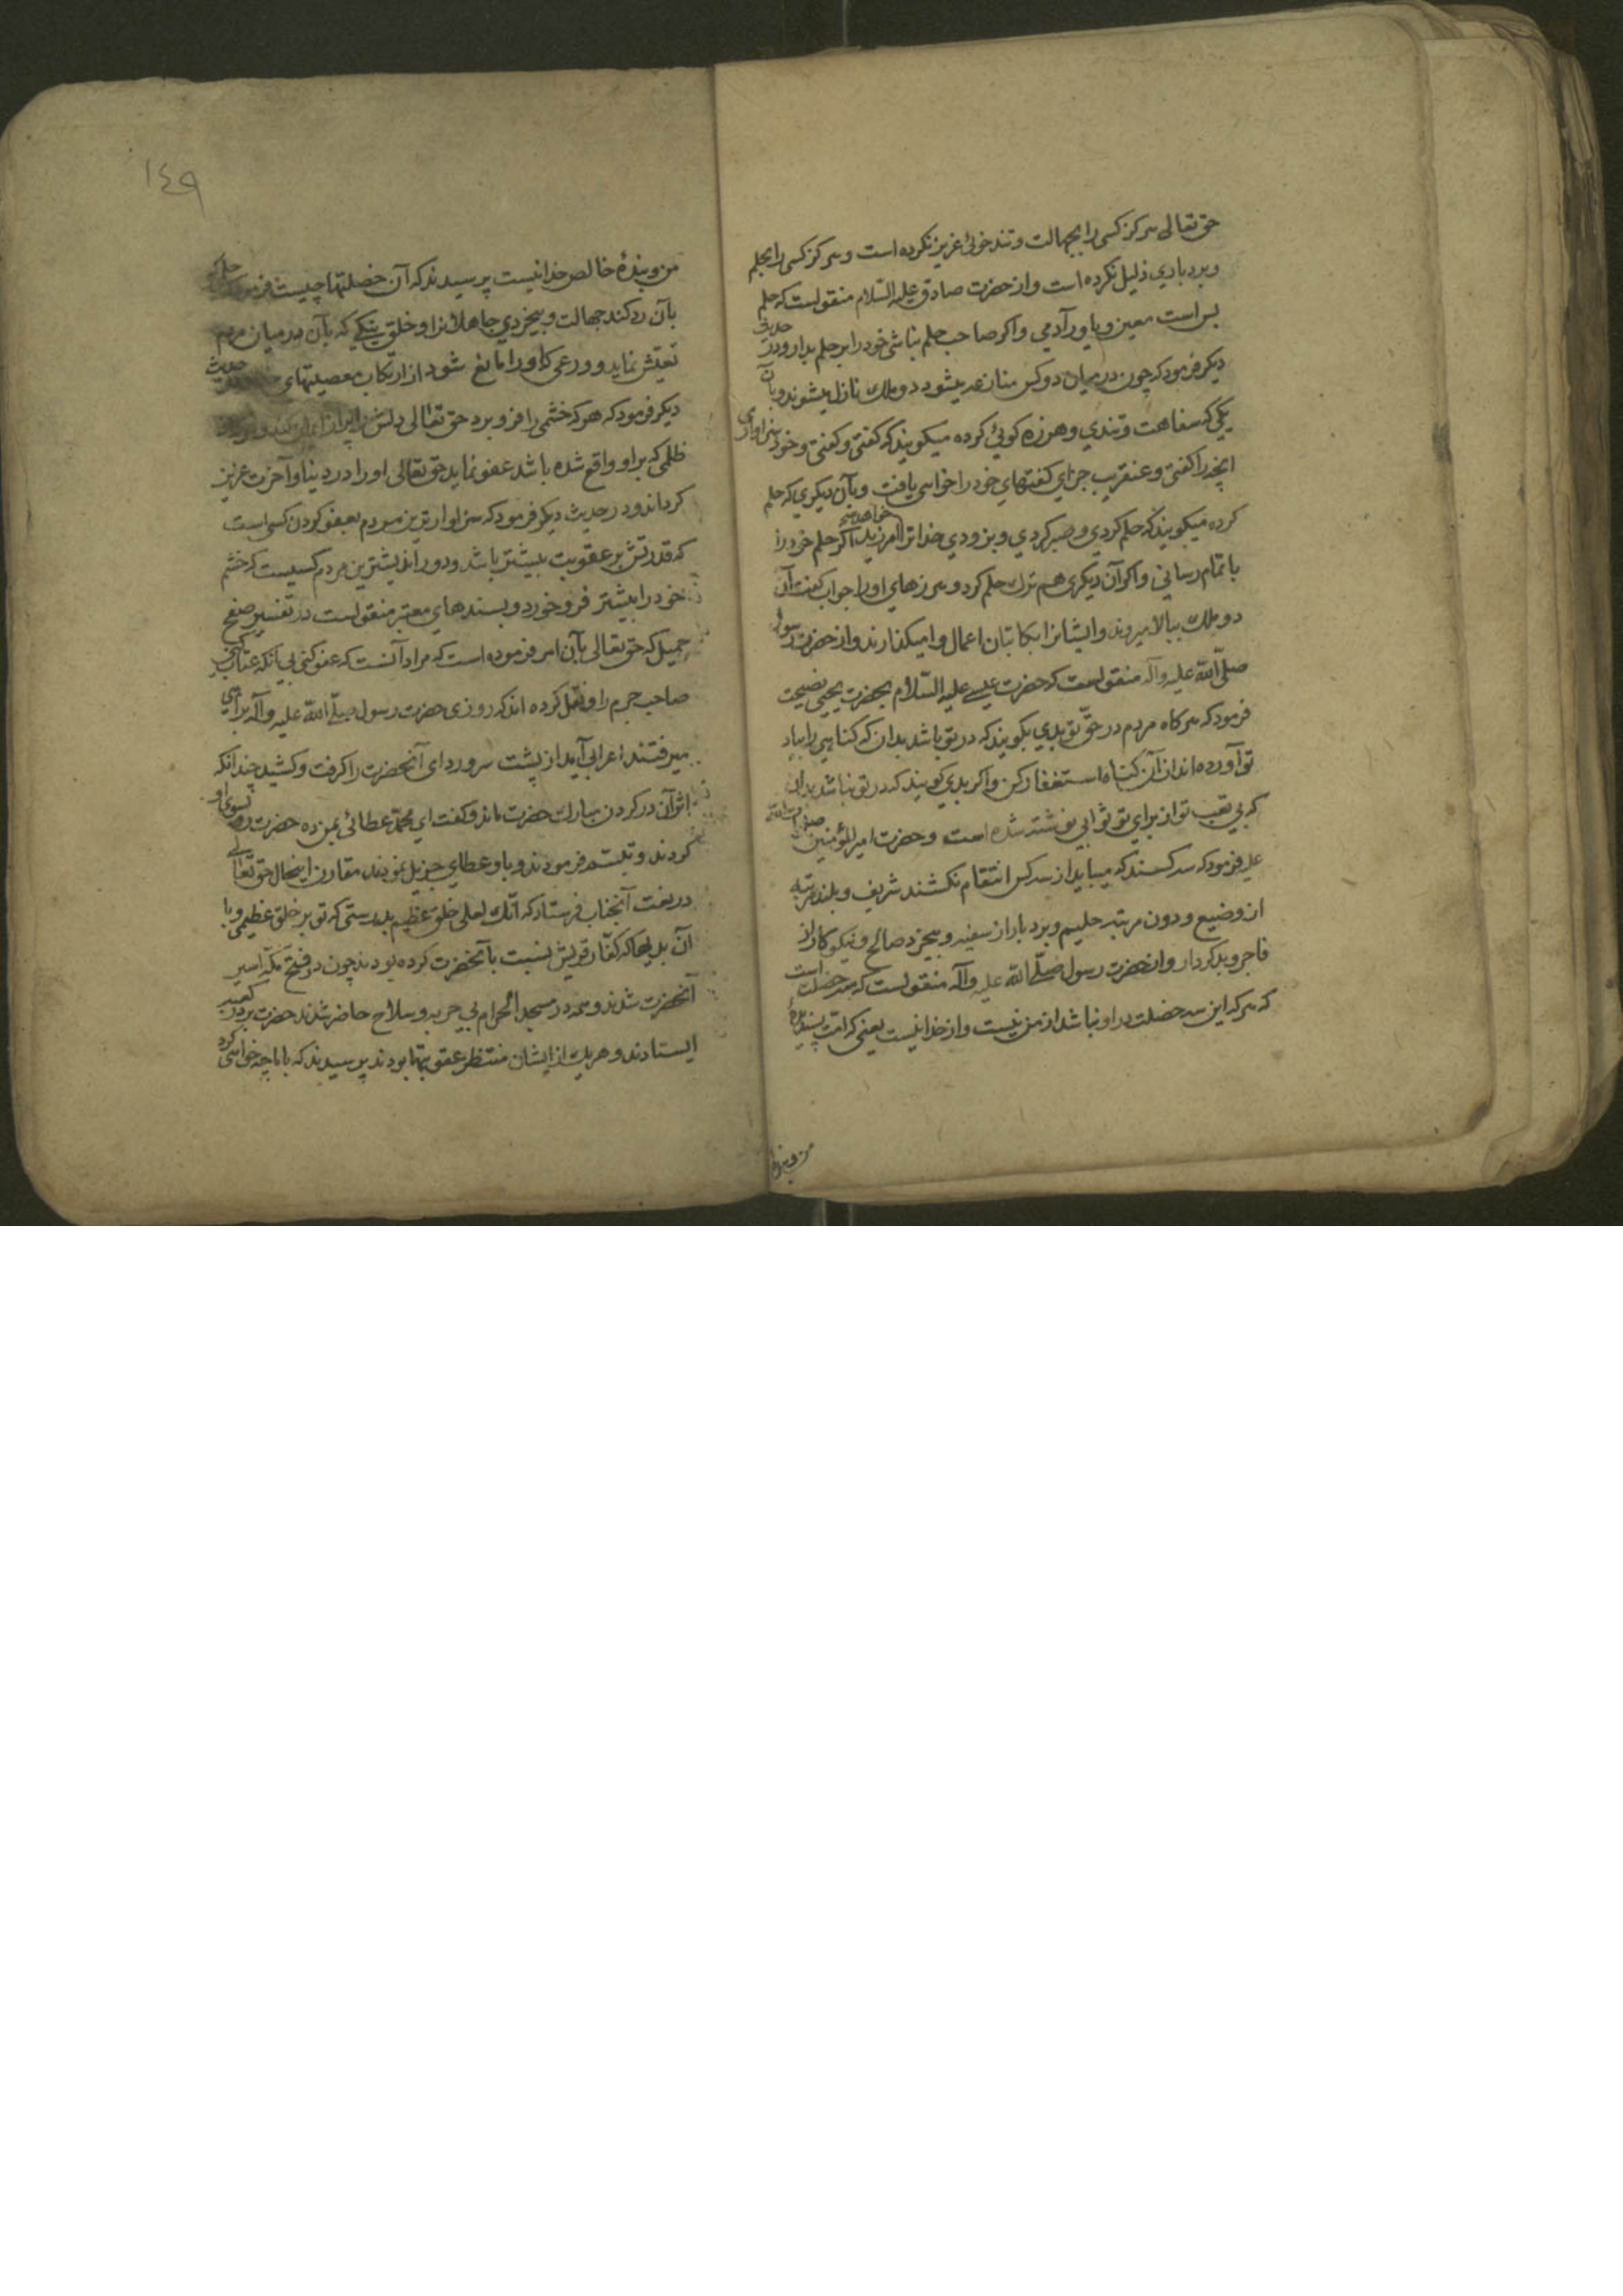 حق تعالی هرکز کسی را بجهالت و تند خوئی عزیز نکرده است و هرکز کسی را بحلم
و بردباری ذلیل نکرده است و از حضرت صادق علیه السّلام منقولست که حلم
بس است معین و یاور آدمی و اکر صاحب حلم نباشی خود را بر حلم بدار و در حدیث
دیکر فرمود که چون در میان دو کس منازعه میشود دو ملك نازل میشوند و بآن
یکی که سفاهت و تندی و هرزه کوئی کرده میکویند که کفتی و کفتی و خود سزاواری
آنچه را کفتی و عنقریب جزای کفتهای خود را خواهی یافت و بآن دیکری که حلم
کرده میکویند که حلم کردی و صبر کردی و بزودی خدا ترا خواهد آمرزید اکر حلم خود را
باتمام رسانی و اکر آن دیکری هم ترك حلم کرد و هرزهای او را جواب کفت آن
دو ملك ببالا میروند و ایشانرا بکاتبان اعمال وامیکذارند و از حضرت رسول
صلّی الله علیه وآله منقولست که حضرت عیسی علیه السّلام بحضرت یحیی نصیحت
فرمود که هرکاه مردم در حقّ تو بدی بکویند که در تو باشد بدان که کناهی را بیاد
تو آورده‌اند از آن کناه استغفار کن و اکر بدی کویند که در تو نباشد بدان
که بی تعب تو از برای تو ثوابی نوشته شده است و حضرت امیرالمؤمنین صلوات الله
علیه فرمود که سه کسند که میباید از سه کس انتقام نکشند شریف و بلند مرتبه
از وضیع و دون مرتبه حلیم و بردبار از سفیه و بیخرد صالح و نیکوکار از
فاجر و بدکردار و از حضرت رسول صلّی الله علیه وآله منقولست که سه خصلت است
که هرکه این سه خصلت در او نباشد از من نیست و از خدا نیست یعنی که امّت پسندیدهٔ
من و بندهٔ
١٤٩
من و بندهٔ خالص خدا نیست پرسیدند که آن خصلتها چیست فرمود حلم که
بآن رد کند جهالت و بیخردی جاهلانرا و خلق نیکی که بآن در میان مردم
تعیّش نماید و ورعی که او را مانع شود از ارتکاب معصیتهای حدیث
دیکر فرمود که هرکه خشمی را فرو برد حق تعالی دلش را پر از ایمان کند و هرکه از
ظلمی که بر او واقع شده باشد عفو نماید حق تعالی او را در دنیا و آخرت عزیز
کرداند و در حدیث دیکر فرمود که سزاوارترین مردم بعفو کردن کسی است
که قدرتش بر عقوبت بیشتر باشد و دوراندیشترین مردم کسیست که خشم
خود را بیشتر فرو خورد و بسندهای معتبر منقولست در تفسیر صفح
جمیل که حق تعالی بآن امر فرموده است که مراد آنست که عفو کنی بی آنکه عتاب کنی
صاحب جرم را و نقل کرده اند که روزی حضرت رسول صلّی الله علیه وآله براهی
میرفتند اعرابی آمد از پشت سر و ردای آنحضرت را کرفت و کشید چندانکه
اثر آن در کردن مبارك حضرت ماند و کفت ای محمّد عطائی بمن ده حضرت رو بسوی او
کردند و تبسّم فرمودند و باو عطای جزیل نمودند مقارن اینحال حق تعالی
در نعت آنجناب فرستاد که انّك لعلی خلق عظیم بدرستی که تو بر خلق عظیمی و با
آن بدیها که کفّار قریش نسبت بآنحضرت کرده بودند چون در فتح مکّه اسیر
آنحضرت شدند و همه در مسجد الحرام بی حربه و سلاح حاضر شدند حضرت بر در کعبه
ایستادند و هریك از ایشان منتظر عقوبتها بودند پرسیدند که با ما چه خواهی کرد